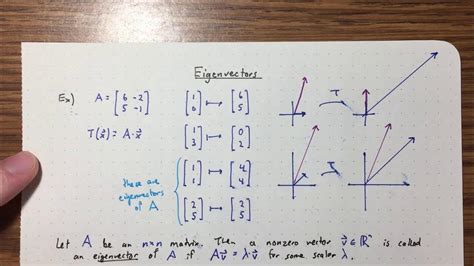 Eigenvectors
Ex) A = [6 -2
5 -1]
[1
0] ↦ [6
5]
T
T(x⃗) = A·x⃗
[1
3] ↦ [0
2]
T
these are
eigenvectors
of A
[1
1] ↦ [4
4]
[2
5] ↦ [2
5]
Let A be an n×n matrix. Then a nonzero vector v⃗ ∈ ℝⁿ is called
an eigenvector of A if Av⃗ = λ·v⃗ for some scalar λ.